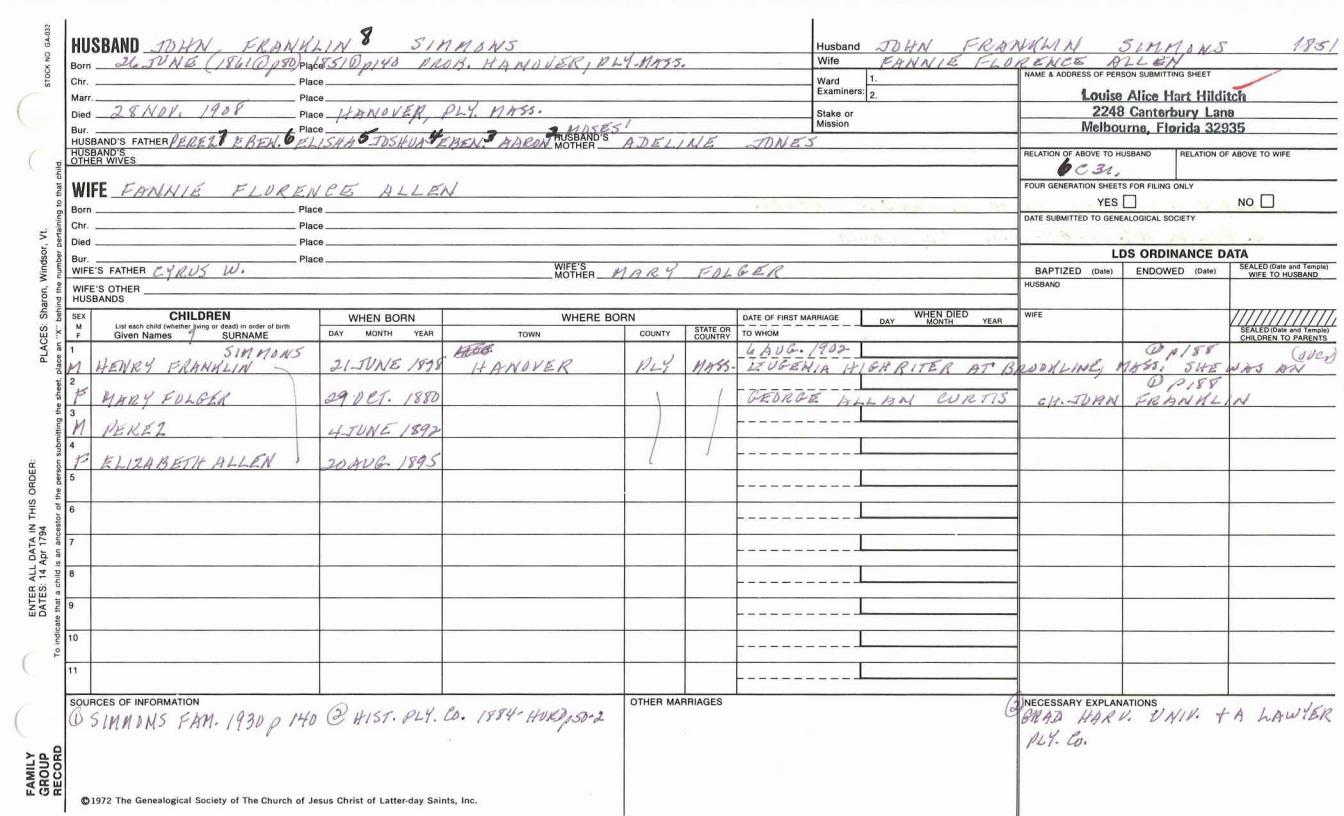 STOCK NO GA-032
HUSBAND JOHN FRANKLIN 8 SIMMONS
Born 26 JUNE (1861 ② p50) Place 1851 ① p140 PROB. HANOVER, PLY. MASS.
Chr. Place
Marr. Place
Died 28 NOV. 1908 Place HANOVER, PLY. MASS.
Bur. Place
HUSBAND'S FATHER PEREZ 7 EBEN. 6 ELISHA 5 JOSHUA 4 EBEN. 3 AARON 2 MOSES 1 HUSBAND'S MOTHER ADELINE JONES
HUSBAND'S OTHER WIVES
Husband JOHN FRANKLIN SIMMONS 1851
Wife FANNIE FLORENCE ALLEN
Ward 1.
Examiners: 2.
Stake or
Mission
NAME & ADDRESS OF PERSON SUBMITTING SHEET
Louise Alice Hart Hilditch
2248 Canterbury Lane
Melbourne, Florida 32935
RELATION OF ABOVE TO HUSBAND RELATION OF ABOVE TO WIFE
6 C 3r.
FOUR GENERATION SHEETS FOR FILING ONLY
YES NO
DATE SUBMITTED TO GENEALOGICAL SOCIETY
WIFE FANNIE FLORENCE ALLEN
Born Place
Chr. Place
Died Place
Bur. Place
WIFE'S FATHER CYRUS W. WIFE'S MOTHER MARY FOLGER
WIFE'S OTHER HUSBANDS
LDS ORDINANCE DATA
BAPTIZED (Date) ENDOWED (Date) SEALED (Date and Temple) WIFE TO HUSBAND
HUSBAND
WIFE
SEALED (Date and Temple) CHILDREN TO PARENTS
SEX M F CHILDREN WHEN BORN WHERE BORN DATE OF FIRST MARRIAGE WHEN DIED
List each child (whether living or dead) in order of birth
Given Names SURNAME DAY MONTH YEAR TOWN COUNTY STATE OR COUNTRY TO WHOM DAY MONTH YEAR
1 SIMMONS 6 AUG. 1902 ① p188 (over)
M HENRY FRANKLIN 21 JUNE 1878 HANOVER PLY MASS. EUGENIA HIGHRITER AT BROOKLINE, MASS. SHE WAS AN
2 ① p188
F MARY FOLGER 29 OCT. 1880 GEORGE ALLAN CURTIS CH. JOHN FRANKLIN
3
M PEREZ 4 JUNE 1892
4
F ELIZABETH ALLEN 20 AUG. 1895
5
6
7
8
9
10
11
SOURCES OF INFORMATION
① SIMMONS FAM. 1930 p 140 ② HIST. PLY. CO. 1884- HURD p50-2
OTHER MARRIAGES
② NECESSARY EXPLANATIONS
GRAD HARV. UNIV. + A LAWYER
PLY. CO.
©1972 The Genealogical Society of The Church of Jesus Christ of Latter-day Saints, Inc.
FAMILY
GROUP
RECORD
ENTER ALL DATA IN THIS ORDER:
DATES: 14 Apr 1794
PLACES: Sharon, Windsor, Vt.
To indicate that a child is an ancestor of the person submitting the sheet, place an "X" behind the number pertaining to that child.